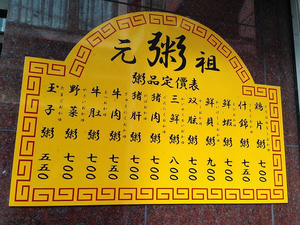 元粥祖
粥品定價表
鶏片粥 七〇〇
什錦粥 七五〇
鮮蝦粥 七〇〇
鮮貝粥 九〇〇
双胘粥 七〇〇
三鮮粥 八〇〇
猪肉粥 七〇〇
猪肝粥 七〇〇
牛肉粥 七五〇
牛肚粥 七〇〇
野菜粥 七〇〇
玉子粥 五五〇